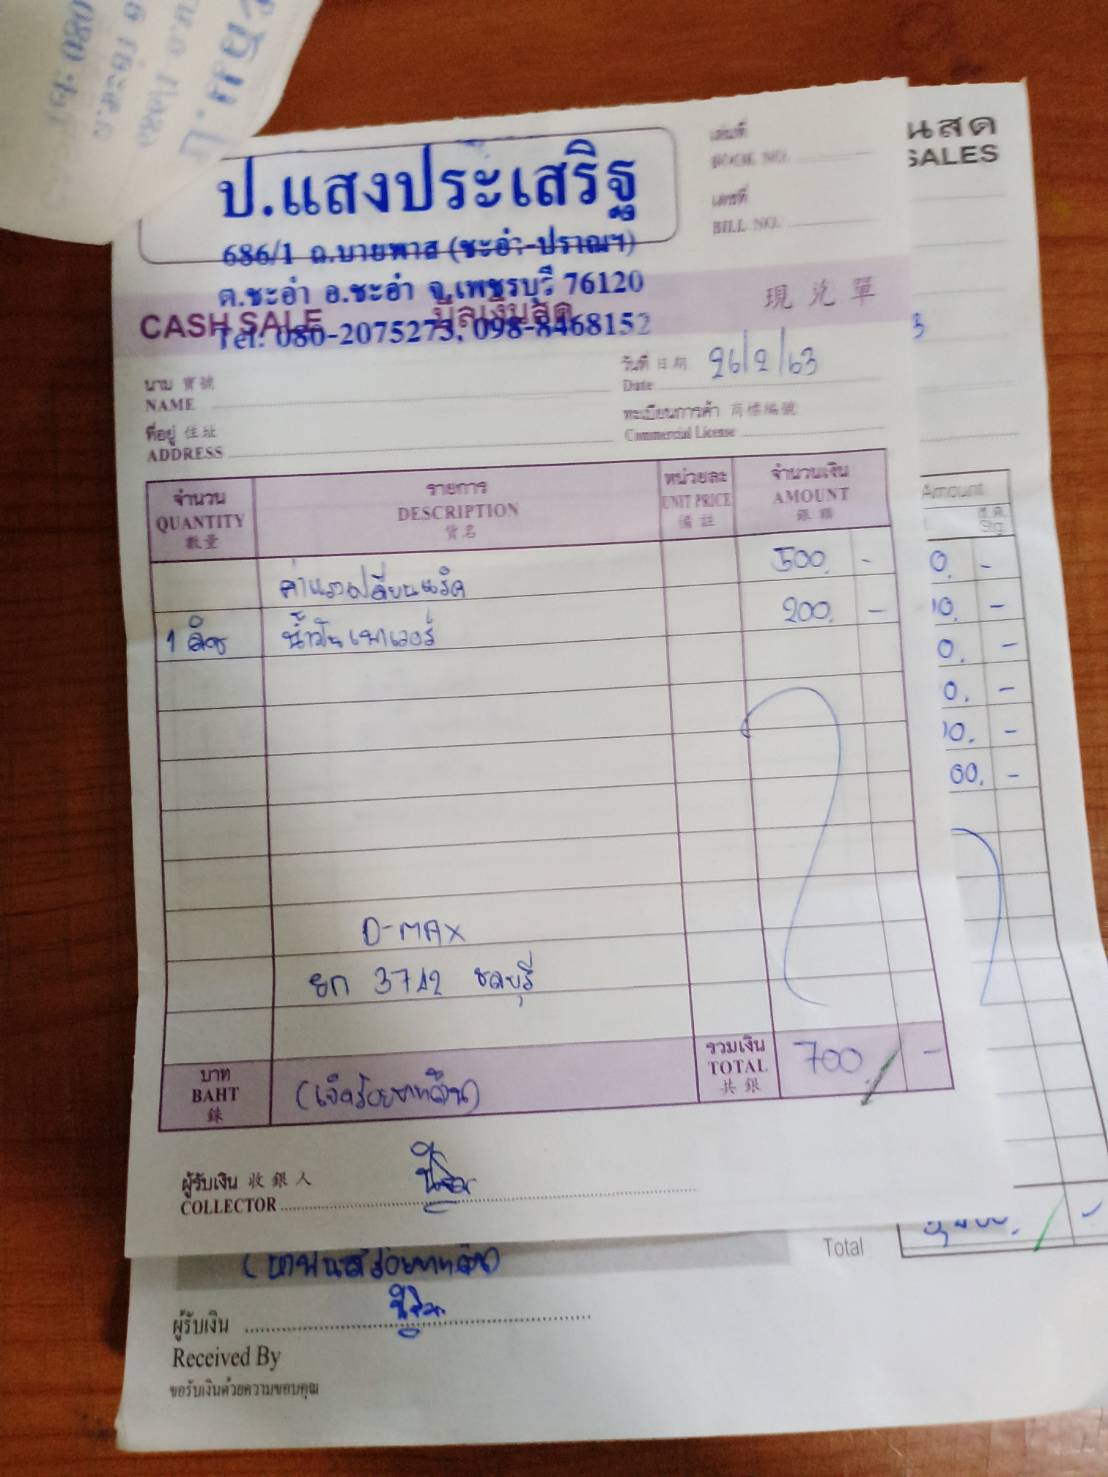 ป.แสงประเสริฐ
686/1 ถ.บายพาส (ชะอำ-ปราณฯ)
ต.ชะอำ อ.ชะอำ จ.เพชรบุรี 76120
Tel. 080-2075273, 098-8468152
เล่มที่
BOOK NO.
เลขที่
BILL NO.
CASH SALE บิลเงินสด 現兑單
นาม 寶號
NAME
วันที่ 日期
Date 26/2/63
ที่อยู่ 住址
ADDRESS
ทะเบียนการค้า 商標編號
Commercial License
จำนวน รายการ หน่วยละ จำนวนเงิน
QUANTITY DESCRIPTION UNIT PRICE AMOUNT
數量 貨名 備註 銀額
ค่าแรงเปลี่ยนแร็ค 500. -
1 ลิตร น้ำมันเพาเวอร์ 200. -
D-MAX
ยก 3742 ชลบุรี
บาท
BAHT
銖
(เจ็ดร้อยบาทถ้วน)
รวมเงิน
TOTAL
共銀
700. -
ผู้รับเงิน 收銀人
COLLECTOR
นสด
SALES
3
Amount
ส.ต.
Stg.
0. -
10. -
0. -
0. -
10. -
00. -
Total
ผู้รับเงิน
Received By
ขอรับเงินด้วยความขอบคุณ